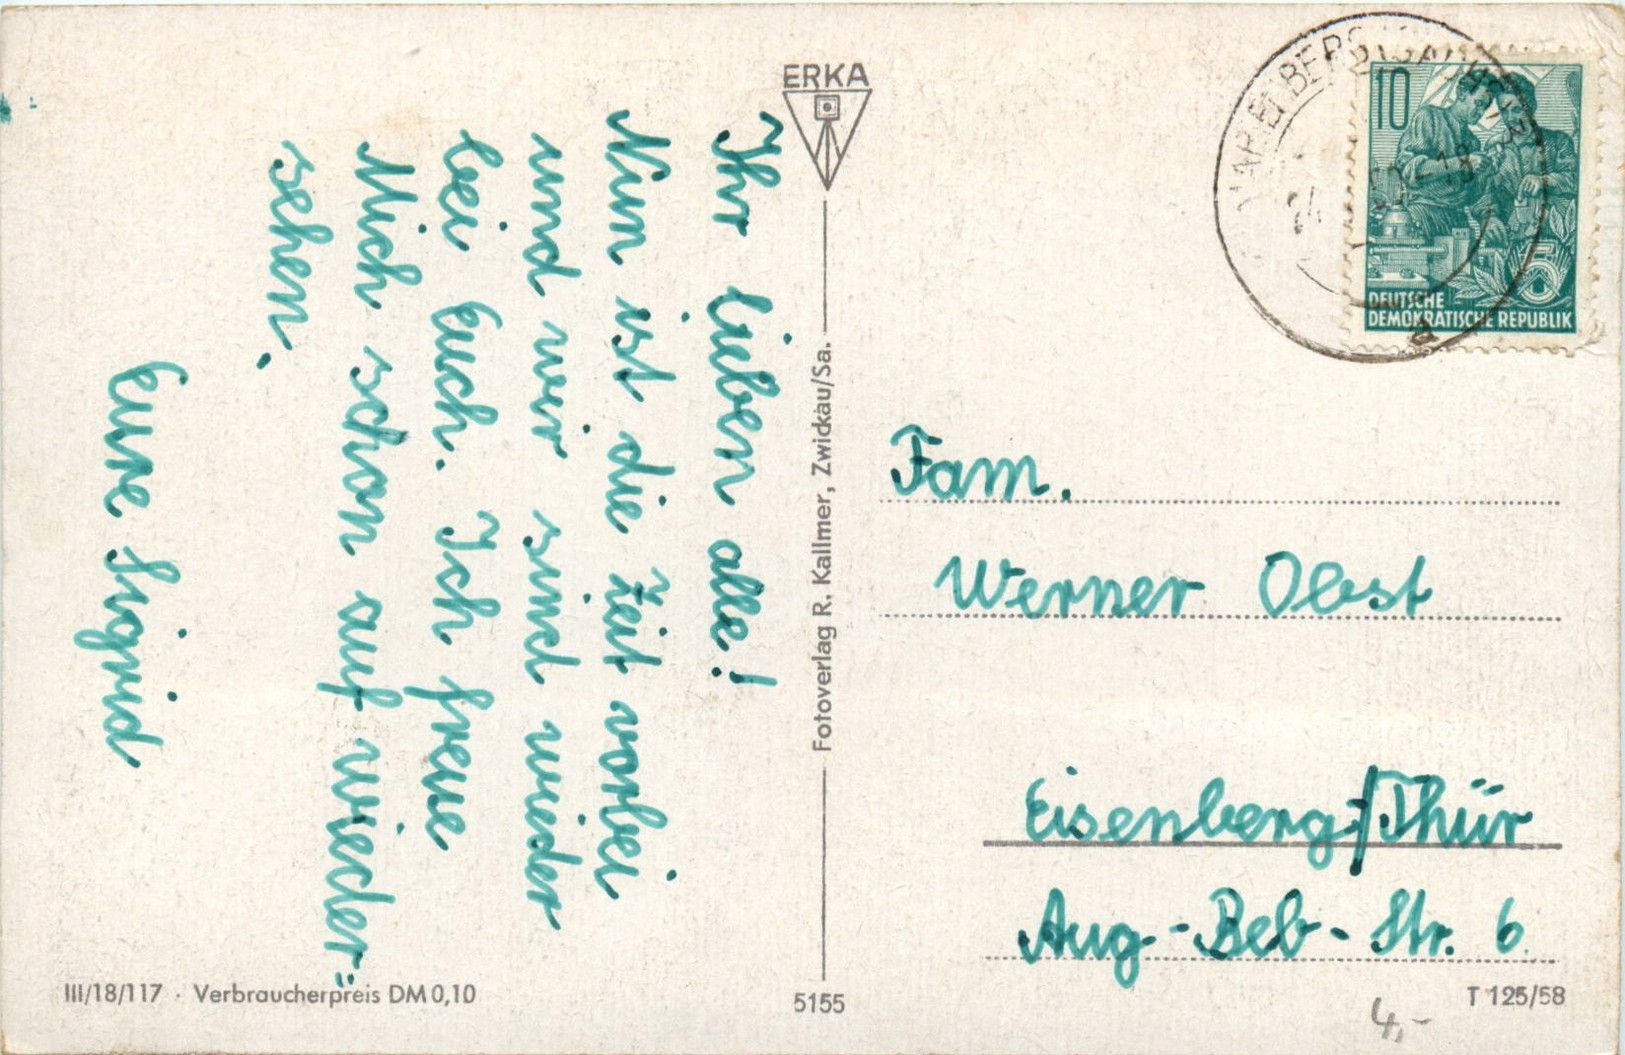 Ihr lieben alle!
Nun ist die Zeit vorbei
und wir sind wieder
bei Euch. Ich freue
Mich schon auf wieder-
sehen.
Eure Sigrid
ERKA
Fotoverlag R. Kallmer, Zwickau/Sa.
10
DEUTSCHE
DEMOKRATISCHE REPUBLIK
Fam.
Werner Obst
Eisenberg/Thür
Aug.-Beb-Str. 6
III/18/117 · Verbraucherpreis DM 0,10
5155
T 125/58
4,-